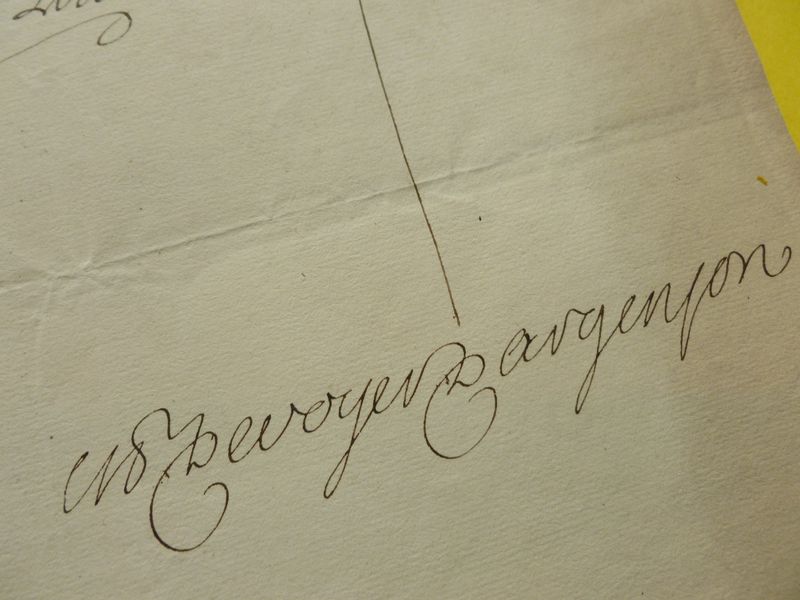 M de voyer dargenson